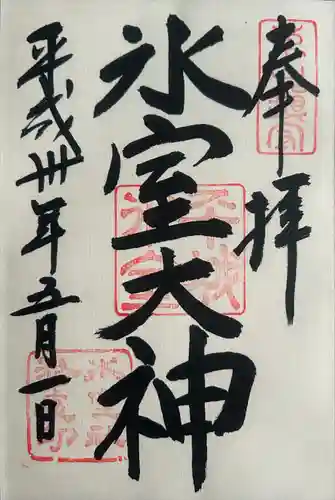 奉拝
氷室大神
平成卅年五月一日